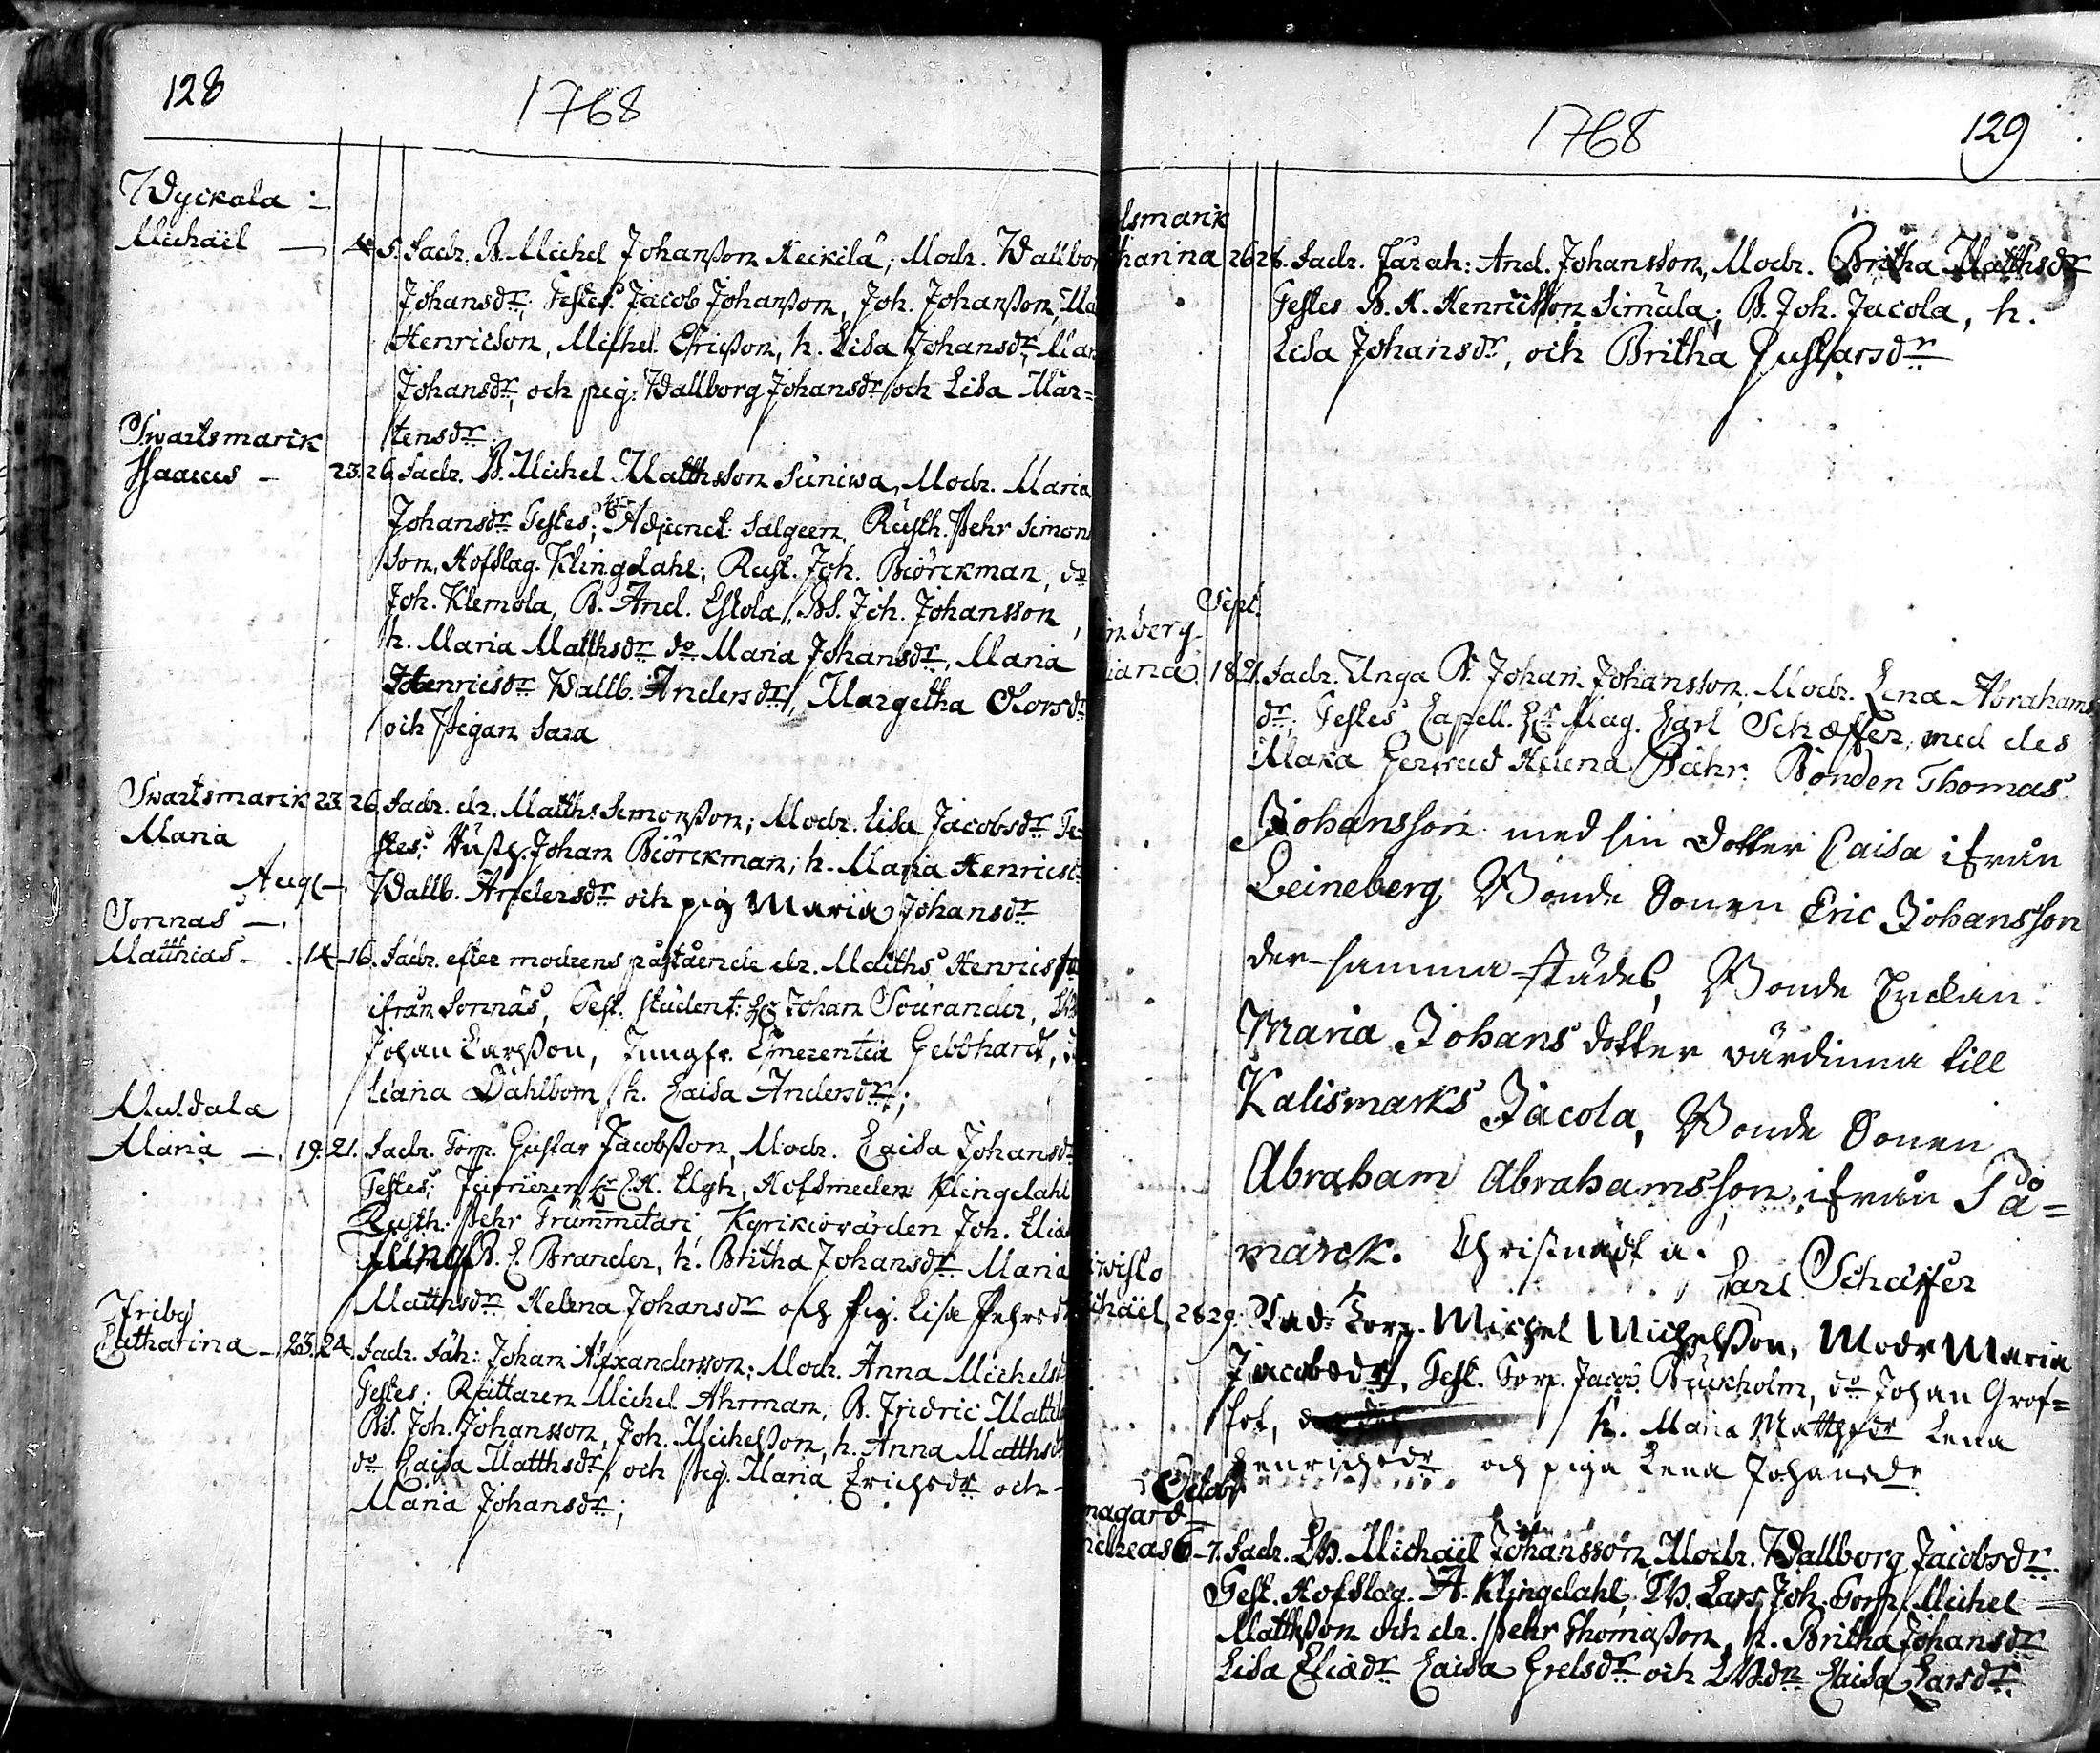 128
1768
Wyckala
Michaël — 4. 5. Fadr. B. Michel Johanßon Heikilä; Modr. Wallbor
Johansdr; Testes: Jacob Johanßon, Joh. Johanßon, Ma
Henricson, Michel Ericßon, h. Lisa Johansdr, Mar
Johansdr, och pig: Wallborg Johansdr och Lisa Mår=
tensdr
Swartsmarck
Isaacus — 23. 26 Fadr. B. Michel Matthsson Suniwa, Modr. Maria
Johansdr Testes; Hr Adjunct. Salgeen, Rusth. Pehr Simons
son, Hofslag. Klingdahl; Rust. Joh. Biörckman, do
Joh. Klemola, B. And. Eskola, BS. Joh. Johansson,
h. Maria Matthsdr do Maria Johansdr, Maria
Henricsdr Wallb. Andersdr, Margetha
och Pigan Sara
Swartsmarck 23 26 Fadr. dr. Matths Simonßon; Modr. Lisa Jacobsdr Te=
Maria stes: Johan Biörckman; h. Maria Henricsd
Aug. Wallb. Andersdr och pig Maria Johansdr
Sonnas —
Matthias — 14 16. Fadr. efter modrens påstående dr. Matths Henrics
ifrån Sonnäs, Test. Student: Hr Johan Sourander,
Johan Larßon, Jungfr. Emerentia Gebbhardt,
liana Dahlbom, h. Caisa Andersdr;
Muldala
Maria — 19. 21. Fadr. Torp. Gustav Jacobßon, Modr. Caisa Johansdr
Testes: Hr C. H. Elgh, Hofsmeden Klingdahl
Rusth: Pehr Trummitari, Kyrkiovärden Joh. Elia
B. E. Brander, h. Britha Johansdr Maria
Matthsdr Helena Johansdr och Pig. Lisa Pehrsd
Friby
Catharina — 23. 24. Fadr. Johan Alexandersson; Modr. Anna Michelsd
Testes: Ryttaren Michel Ahrman, B. Fridric Matth
BS. Joh. Johansson, Joh. Michelßon, h. Anna Matthsd
do Caisa Matthsdr, och Pig. Maria Erichsdr och
Maria Johansdr;
1768
129
lsmarck
tharina 26 28. Fadr. And. Johansson, Modr. Britha Matthsdr
Testes B. H. Henricsson Simula; B. Joh. Jacola, h.
Lisa Johansdr, och Britha Gustavsdr
Sept.
nberg
iana 18 21. Fadr. Unga B. Johan Johansson, Modr. Lena Abrahams
dr; Testes Capell. Hr Mag. Carl Schæffer, med des
Maka Gertrud Helena Bähr. Bonden Thomas
Johansson med sin dotter Caisa ifrån
Leineberg, Bonde Sonen Eric Johansson
der-samma-städes, Bonde Enckan
Maria Johans dotter värdinna till
Kalismarks Jacola, Bonde Sonen
Abraham Abrahamsson ifrån Tå=
marck. Christnadt a.
Carl Schæffer
rwisto
ichaël, 28 29. Fadr Torp. Michel Michelßon, Modr Maria
Jacobsdr, Test. Torp. Jacob Bruxholm, do Johan Grof=
h. Maria Matthsdr Lena
Henrichsdr och piga Lena Johansdr
Octobr
nagard
ndreas 6-7. Fadr. LB. Michaël Johansson, Modr. Wallborg Jacobsdr
Test. Hofslag. A. Klingdahl, LB. Lars Joh. Torp. Michel
Matthßon och dr. Pehr Thomaßon, h. Britha Johansdr
Lisa Eliædr Caisa Grelsdr och LB.dr Caisa Larsdr